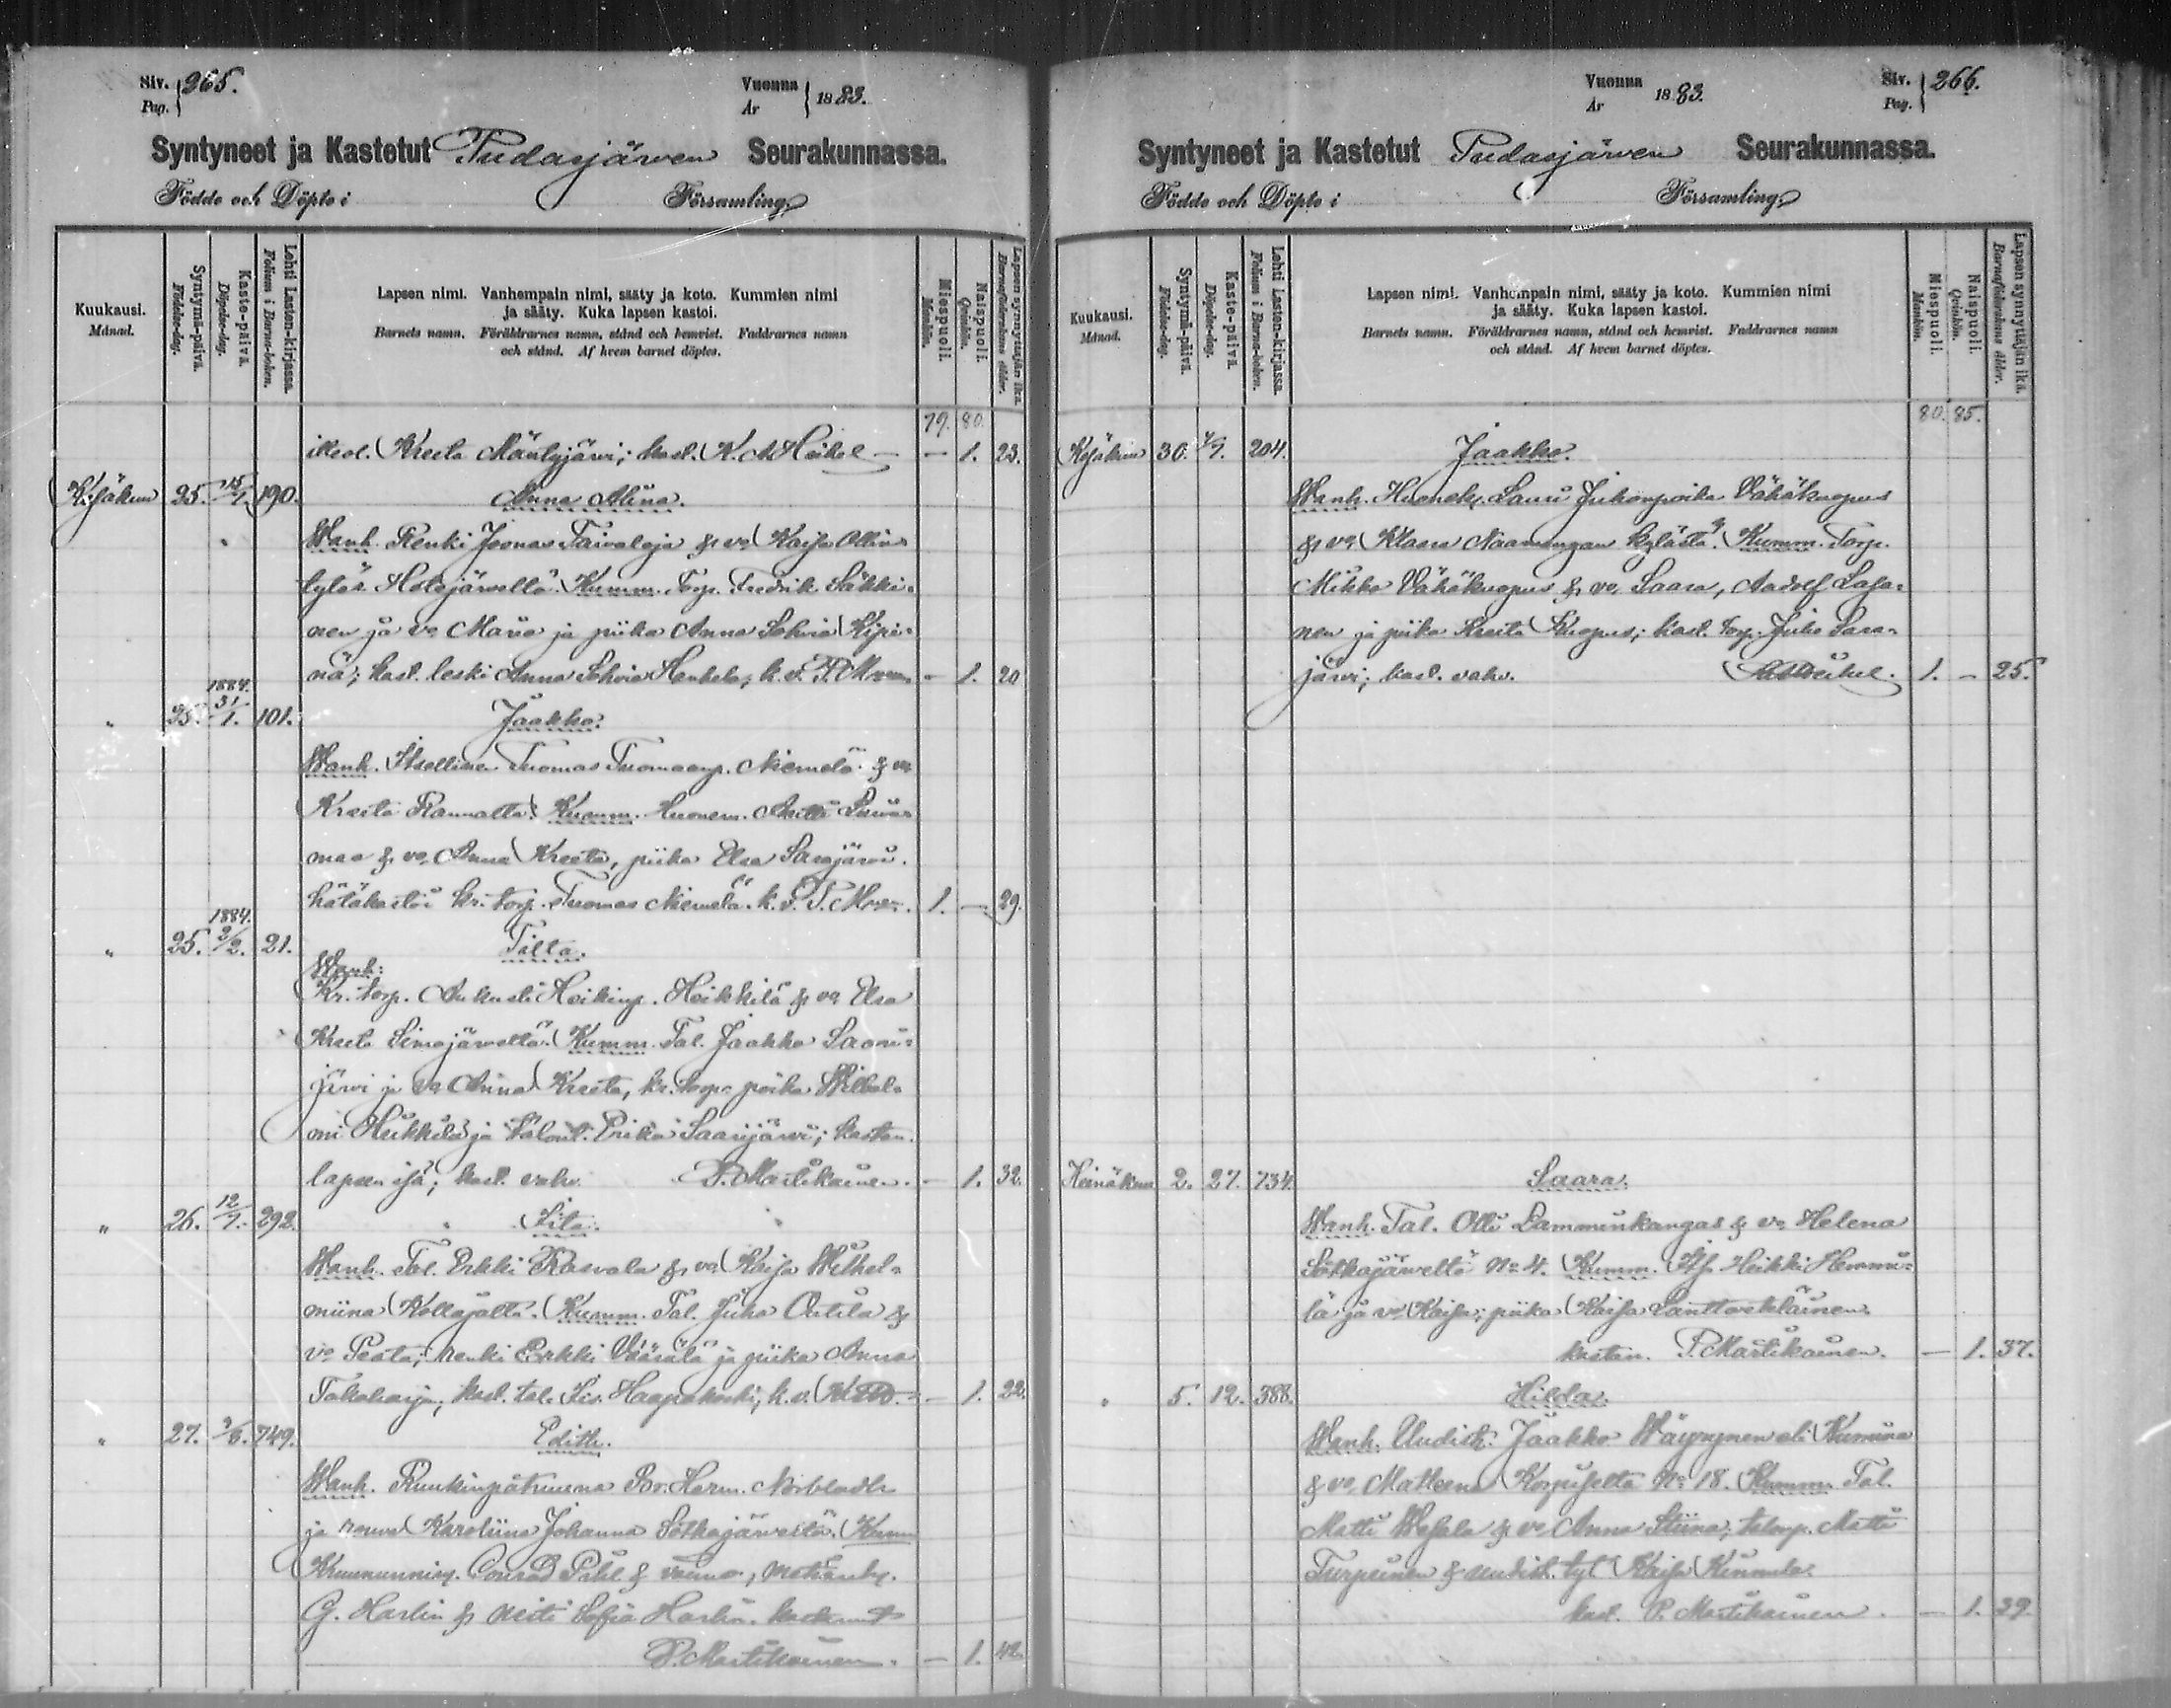 Siv. Pag. 265.
Vuonna År 1883.
Syntyneet ja Kastetut Pudasjärven Seurakunnassa.
Födde och Döpte i Församling
Kuukausi. Månad.
Syntymä-päivä. Födelse-dag.
Kaste-päivä. Döpelse-dag.
Lehti Lasten-kirjassa. Folium i Barna-boken.
Lapsen nimi. Vanhempain nimi, sääty ja koto. Kummien nimi
ja sääty. Kuka lapsen kastoi.
Barnets namn. Föräldrarnes namn, stånd och hemvist. Faddrarnes namn
och stånd. Af hvem barnet döptes.
Miespuoli. Mankön.
Naispuoli. Qvinkön.
Lapsen synnyttäjän ikä. Barnaföderskans ålder.
79. 80.
Kreeta Mäntyjärvi; kast. K. A. Heikel — — 1. 23.
Kesäkuu 25. 15/7. 190. Anna Aliina.
Wanh. Renki Joonas Taivaloja & vo Kaisa Ollin
tytär Hetejärveltä. Kumm. Torp. Fredrik Säkki-
nen ja vo Maria ja piika Anna Sohvia Kipi-
nä; kast. leski Anna Sohvia Hankela; k. v. P. M. — 1. 20
" 25. 1884. 31/1. 101. Jaakko.
Wanh. Itsellinen Tuomas Tuomaanp. Niemelä & vo
Kreeta Rannalta. Kumm. Huonem. Antti
maa & vo Anna Kreeta, piika Elsa Sarajärvi.
hätäkastoi kr. torp. Tuomas Niemelä. k. v. P. M. 1. — 29.
" 25. 1884. 2/2. 21. Tilta.
Wanh:
Kr. torp. Aukusti Heikinp. Heikkilä & vo Elsa
Kreeta Simojärveltä. Kumm. Tal. Jaakko Saari-
järvi ja vo Anna Kreeta, kr. torp. poika Wilhel-
mi Heikkilä ja Erika Saarijärvi; kastan.
lapsen isä; kast. vahv. P. Martikainen. — 1. 32.
" 26. 12/7. 292. Iita.
Wanh. Tal. Erkki Kosvala & vo Kaisa Wilhel-
miina Kollajalta. Kumm. Tal. Juho Outila &
vo Peata; renki Erkki Väärälä ja piika Anna
Takaharju; kast. tal. Haapakoski; k. v. — 1. 22.
" 27. 749. Edith.
Wanh. Ruukinpatruuna Herm. Norbladh
ja rouva Karoliina Johanna Sotkajärveltä. Kumm
Kruununnim. Conrad Pihl & vaimo,
G. Harlin & neiti Sofia Harlin.
P. Martikainen. — 1. 42.
Vuonna År 1883.
Siv. Pag. 266.
Syntyneet ja Kastetut Pudasjärven Seurakunnassa.
Födde och Döpte i Församling
Kuukausi. Månad.
Syntymä-päivä. Födelse-dag.
Kaste-päivä. Döpelse-dag.
Lehti Lasten-kirjassa. Folium i Barna-boken.
Lapsen nimi. Vanhempain nimi, sääty ja koto. Kummien nimi
ja sääty. Kuka lapsen kastoi.
Barnets namn. Föräldrarnes namn, stånd och hemvist. Faddrarnes namn
och stånd. Af hvem barnet döptes.
Miespuoli. Mankön.
Naispuoli. Qvinkön.
Lapsen synnyttäjän ikä. Barnaföderskans ålder.
80. 85.
Kesäkuu 30. 204. Jaakko.
Wanh. Huonem. Lauri Juhonpoika Vähäkuopus
& vo Klaara Naamangan kylästä. Kumm. Torp.
Mikko Vähäkuopus & vo Saara, Aadolf
nen ja piika Kreeta Kuopus; kast. torp. Juho Sara-
järvi; kast. vahv. Heikel. 1. — 25.
Heinäkuu 2. 27. 734. Saara.
Wanh. Tal. Olli Lamminkangas & vo Helena
Sotkajärveltä No 4. Kumm. Its. Heikki Hemmi-
lä ja vo Kaisa; piika Kaisa
kastan. P. Martikainen. — 1. 37.
" 5. 12. 388. Hilda.
Wanh. Uudist. Jaakko Wäyrynen eli Kumina
& vo Matleena Korpiselta No 18. Kumm. Tal.
Matti Wesala & vo Anna Stiina; Matti
Turpeinen & uudist. tyt. Kaisa
kast. P. Martikainen. — 1. 39.